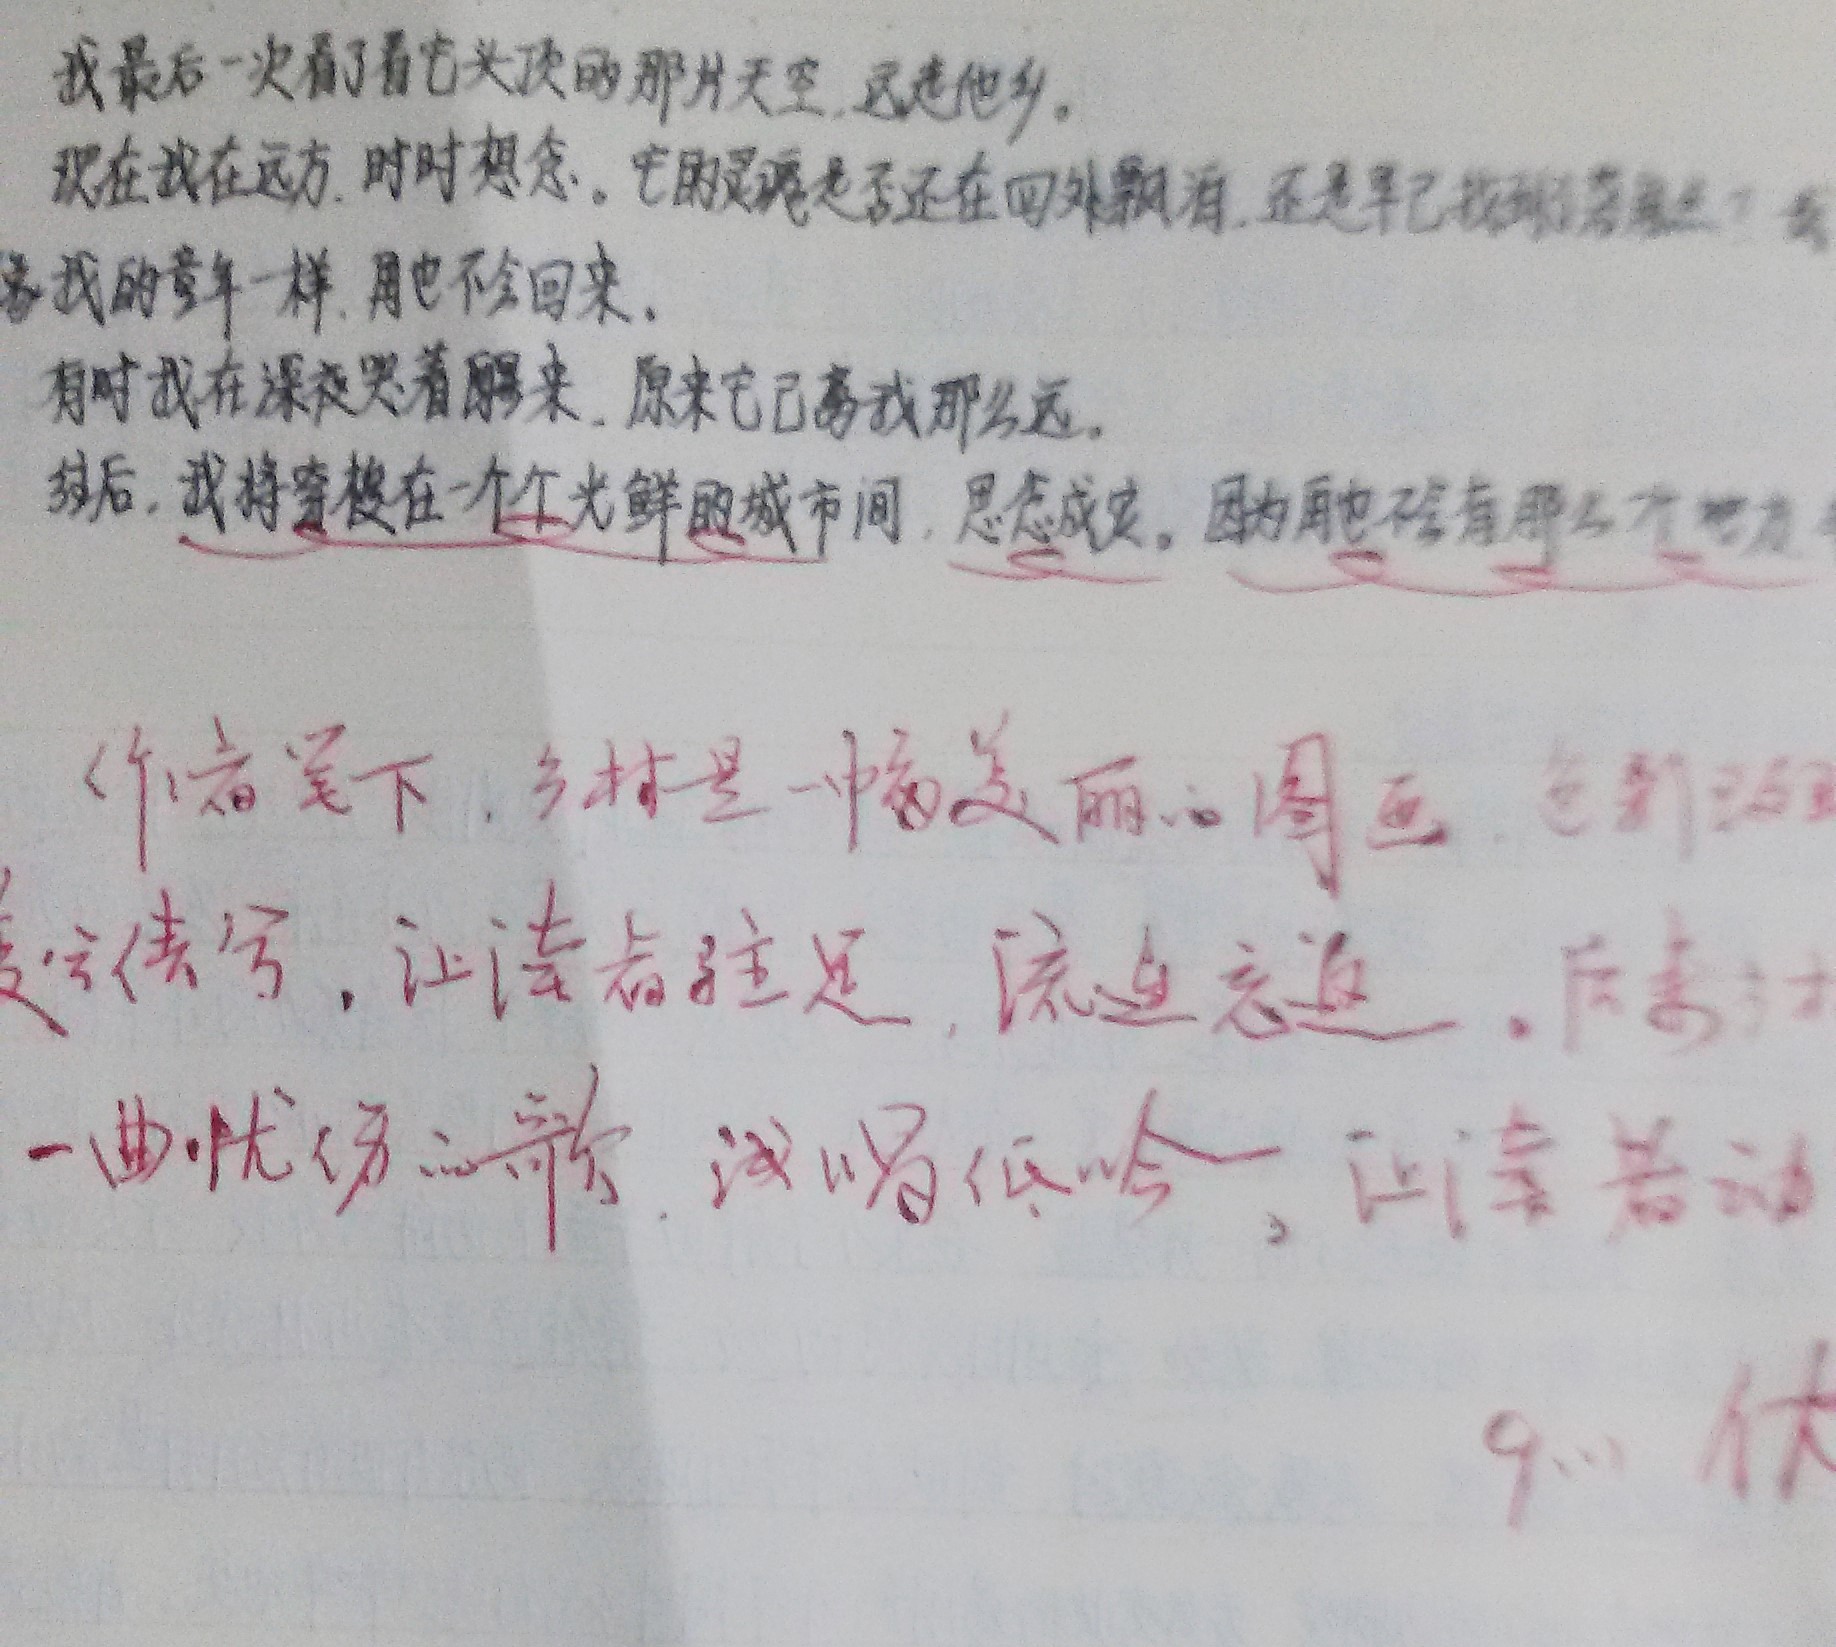 我最后一次看了看它头顶的那片天空,远走他乡。
现在我在远方,时时想念。它的灵魂是否还在四外飘泊,还是早已找到了落点?
我的童年一样,再也不会回来。
有时我在深夜哭着醒来,原来它已离我那么远。
然后,我将穿梭在一个个光鲜的城市间,思念成灾。因为再也不会有那么个地方
作者笔下,乡村是一幅美丽的图画,
写,让读者驻足,流连忘返。后来
一曲忧伤的歌,浅唱低吟,让读者动